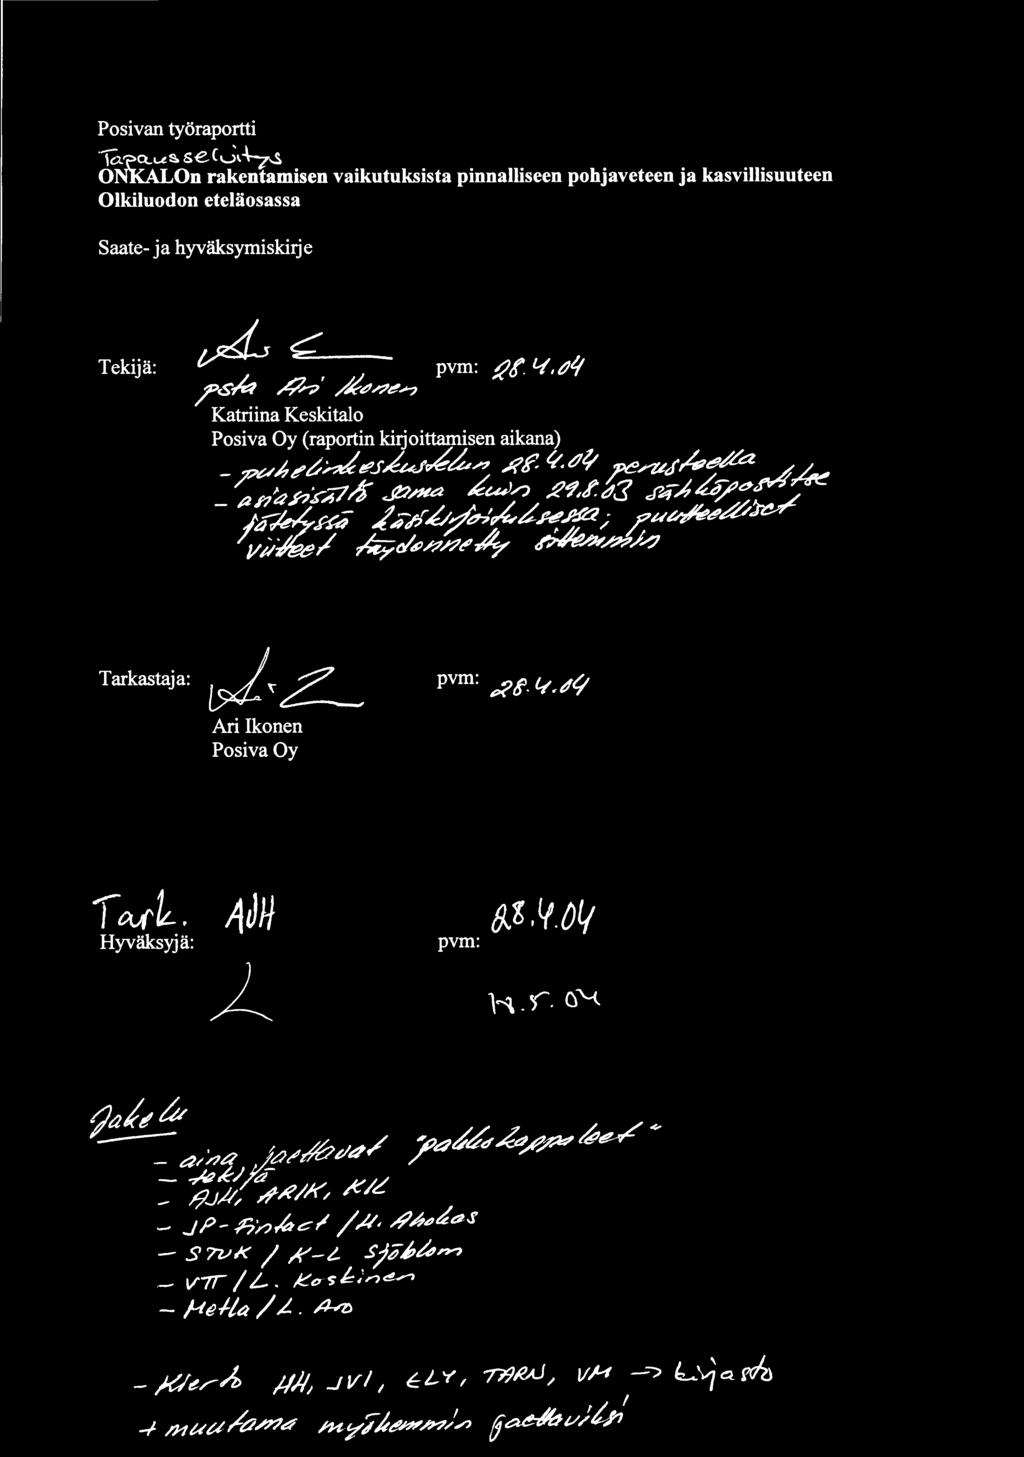 Posivan työraportti
Tapausselvitys
ONKALOn rakentamisen vaikutuksista pinnalliseen pohjaveteen ja kasvillisuuteen
Olkiluodon eteläosassa
Saate- ja hyväksymiskirje
Tekijä: pvm: 28.4.04
psta Ari Ikonen
Katriina Keskitalo
Posiva Oy (raportin kirjoittamisen aikana)
- puhelinkeskustelun 28.4.04 perusteella
- asiasisältö sama kuin 29.8.03 sähköpostitse
jätetyssä käsikirjoituksessa; puutteelliset
viitteet täydonnetty sittemmin
Tarkastaja: pvm: 28.4.04
Ari Ikonen
Posiva Oy
Tark. AJH 28.4.04
Hyväksyjä: pvm:
.5.04
Jakelu
- aina jaettavat "pakkokappaleet"
- tekijä
- AJH, ARIK, KIL
- JP-Fintact / H. Ahokas
- STUK / K-L Sjöblom
- VTT / L. Koskinen
- Metla / L. Aro
- Kierto HH, JVI, ELY, TARU, VM -> kirjasto
+ muutama myöhemmin jaettaviksi